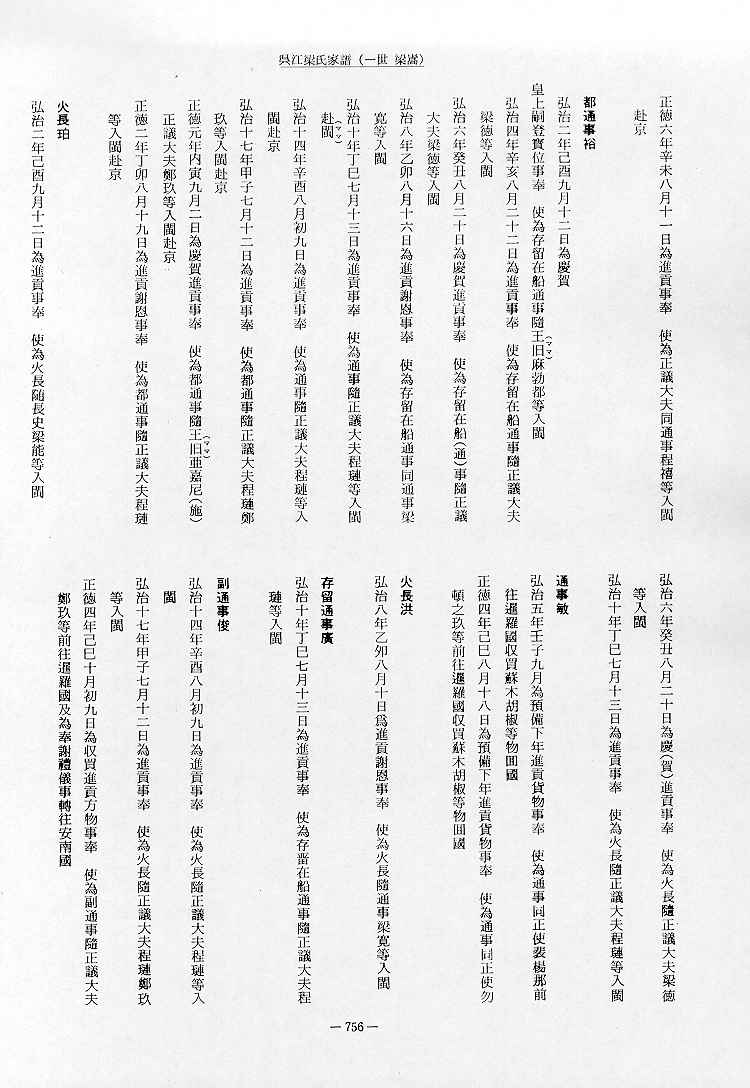 呉江梁氏家譜（一世 梁嵩）
正徳六年辛未八月十一日為進貢事奉　使為正議大夫同通事程禧等入閩
赴京
都通事裕
弘治二年己酉九月十二日為慶賀
皇上嗣登寳位事奉　使為存留在船通事隨王旧麻勃都等入閩
（ママ）
弘治四年辛亥八月二十二日為進貢事奉　使為存留在船通事隨正議大夫
梁德等入閩
弘治六年癸丑八月二十日為慶賀進貢事奉　使為存留在船（通）事隨正議
大夫梁德等入閩
弘治八年乙卯八月十六日為進貢謝恩事奉　使為存留在船通事同通事梁
寛等入閩
弘治十年丁巳七月十三日為進貢事奉　使為通事隨正議大夫程璉等入閩
（ママ）
赴閩
弘治十四年辛酉八月初九日為進貢事奉　使為通事隨正議大夫程璉等入
閩赴京
弘治十七年甲子七月十二日為進貢事奉　使為都通事隨正議大夫程璉鄭
玖等入閩赴京
正徳元年内寅九月二日為慶賀進貢事奉　使為都通事隨王旧亜嘉尼（施）
（ママ）
正議大夫鄭玖等入閩赴京
正徳二年丁卯八月十九日為進貢謝恩事奉　使為都通事隨正議大夫程璉
等入閩赴京
火長珀
弘治二年己酉九月十二日為進貢事奉　使為火長随長史梁能等入閩
弘治六年癸丑八月二十日為慶（賀）進貢事奉　使為火長隨正議大夫梁德
等入閩
弘治十年丁巳七月十三日為進貢事奉　使為火長隨正議大夫程璉等入閩
通事敏
弘治五年壬子九月為預備下年進貢貨物事奉　使為通事同正使裴楊那前
往暹羅國収買蘇木胡椒等物囬國
正徳四年己巳八月十八日為預備下年進貢貨物事奉　使為通事同正使勿
頓之玖等前往暹羅國収買蘇木胡椒等物囬國
火長洪
弘治八年乙卯八月十日爲進貢謝恩事奉　使為火長隨通事梁寛等入閩
存留通事廣
弘治十年丁巳七月十三日為進貢事奉　使為存畱在船通事隨正議大夫程
璉等入閩
副通事俊
弘治十四年辛酉八月初九日為進貢事奉　使為火長隨正議大夫程璉等入
閩
弘治十七年甲子七月十二日為進貢事奉　使為火長隨正議大夫程璉鄭玖
等入閩
正徳四年己巳十月初九日為収買進貢方物事奉　使為副通事隨正議大夫
鄭玖等前往暹羅國及為奉謝禮儀事轉往安南國
— 756 —